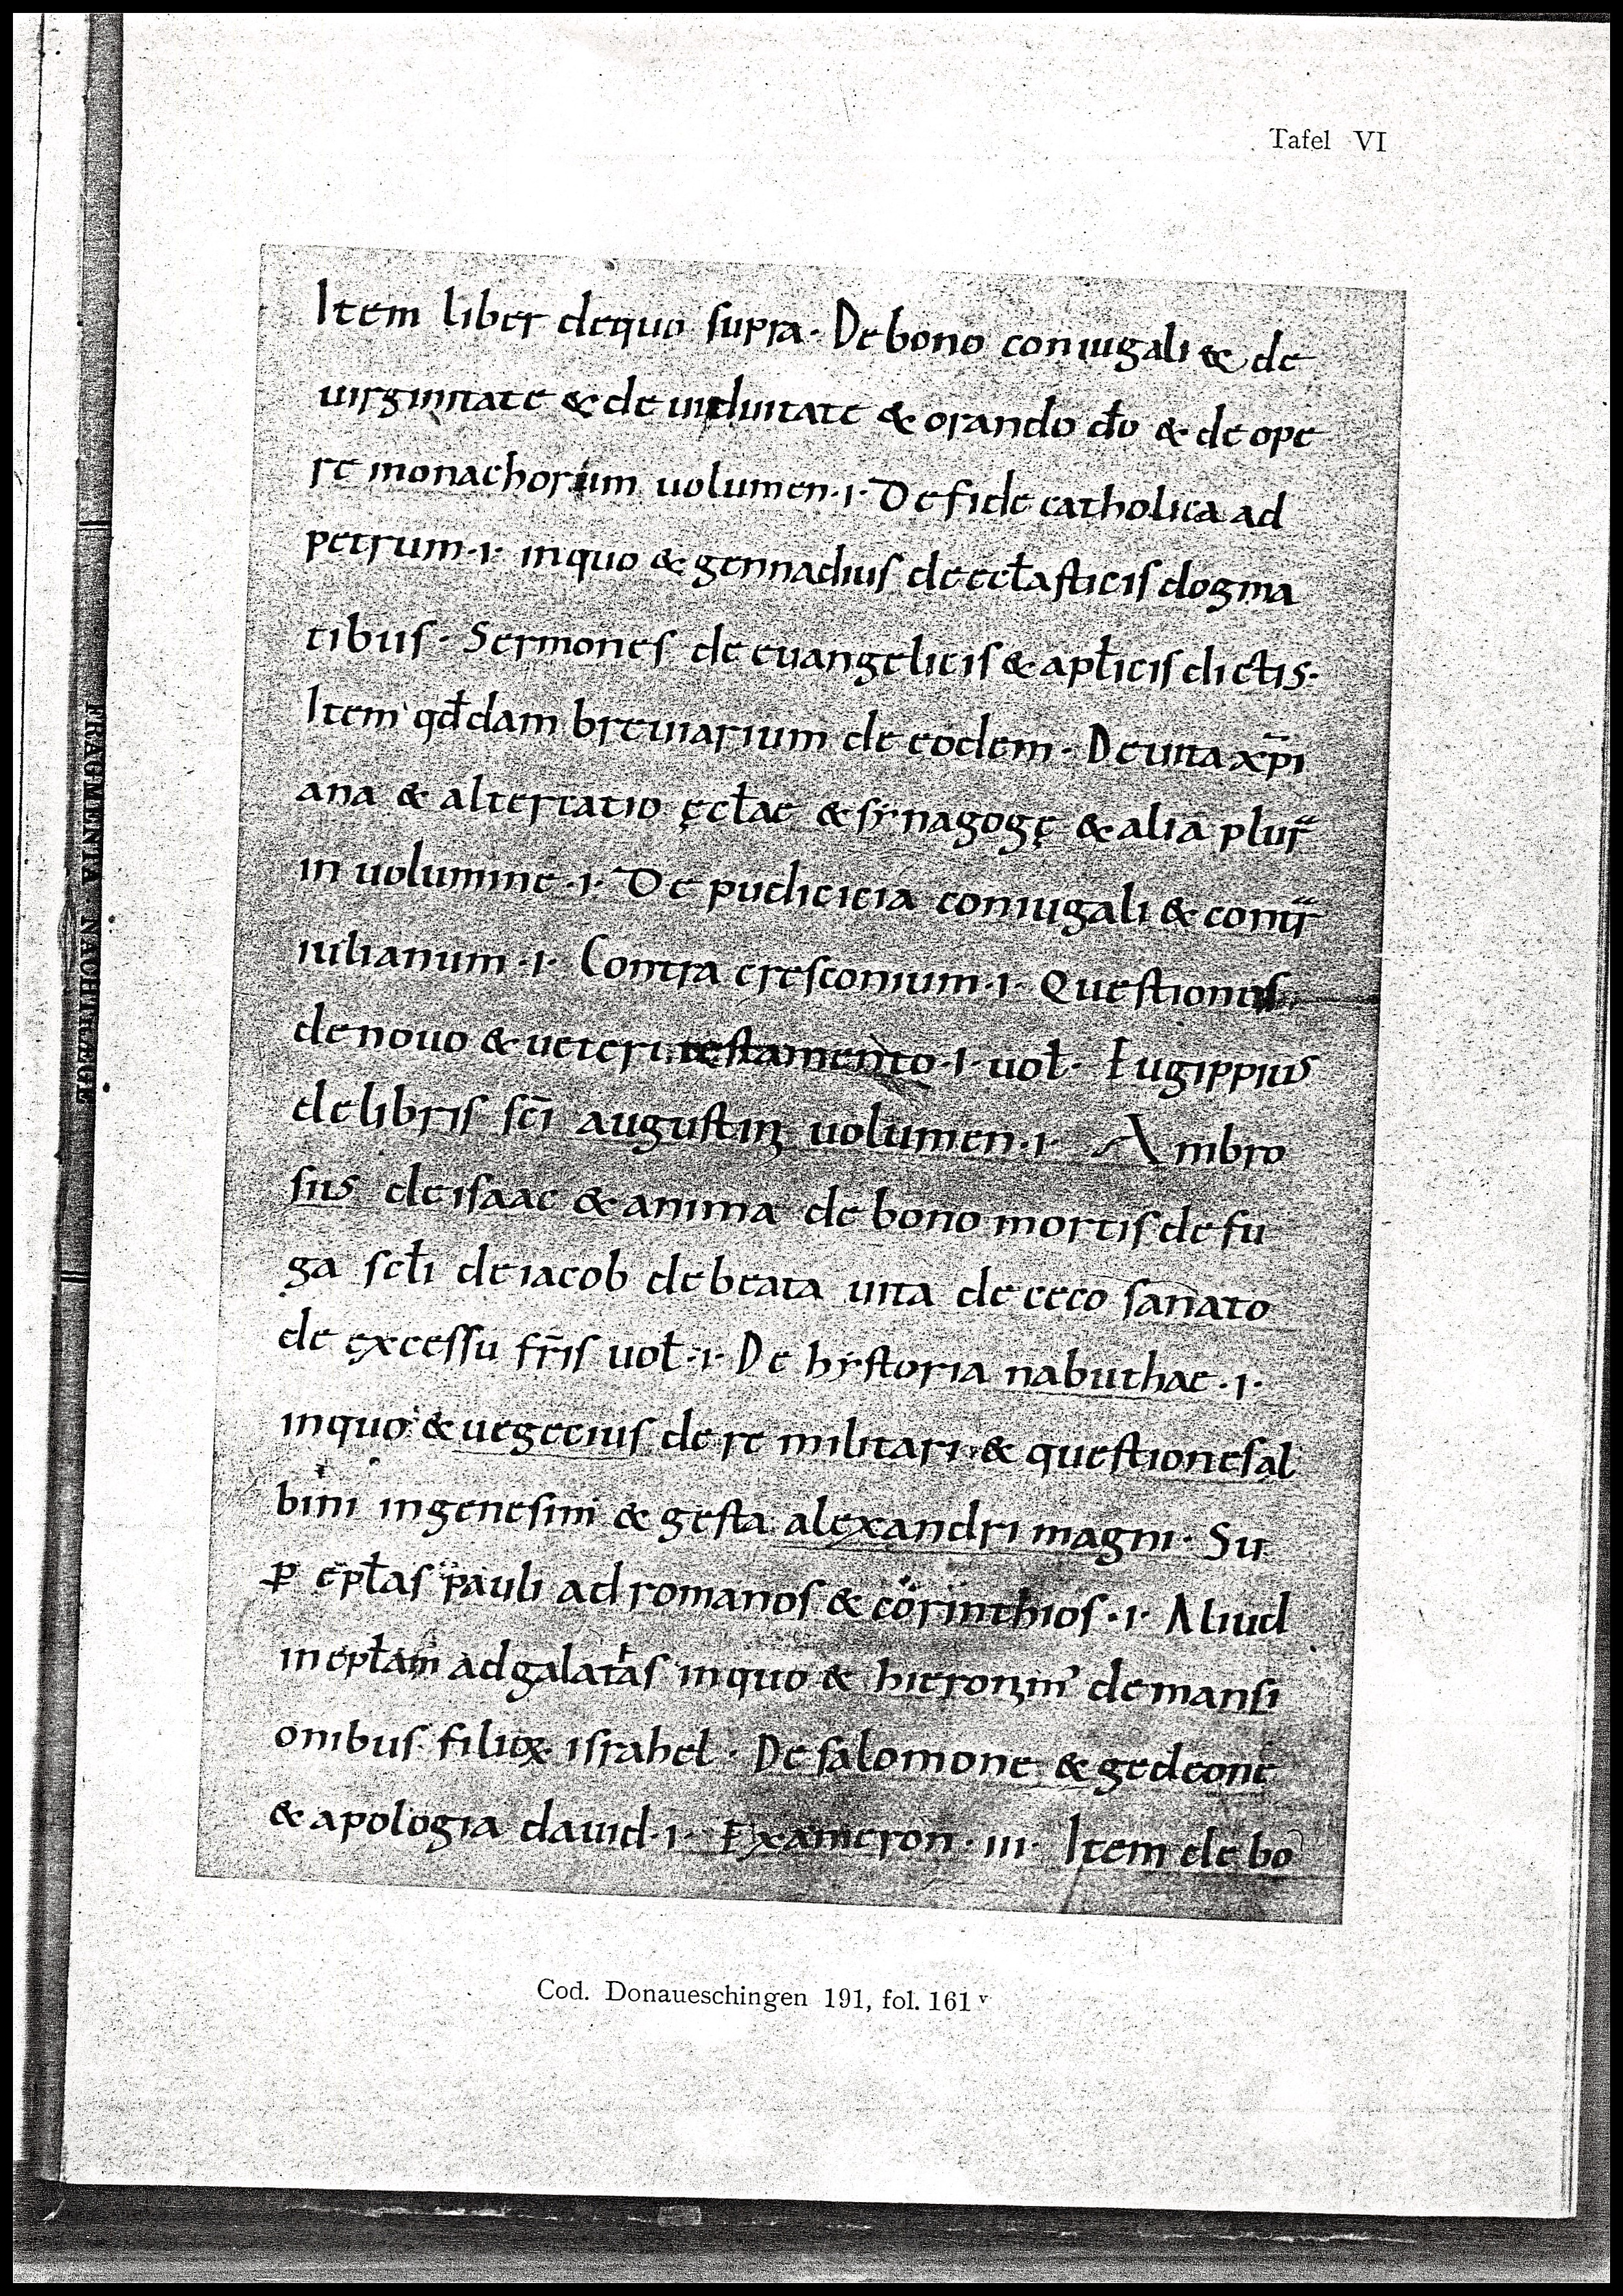 Tafel VI
Item liber dequo supra· De bono coniugali & de
uirginitate & de uiduitate & orando dō & de ope
re monachorum uolumen·i· De fide catholica ad
petrum·i· inquo & gennadius de eccłasticis dogma
tibus· Sermones de euangelicis & apłicis dictis·
Item qđdam breuiarium de eodem· De uita xp̄i
ana & altercatio ęcłae & synagogę & alia plur̄
in uolumine·i· De pudicicia coniugali & contr̄
iulianum·i· Contra cresconium·i· Questiones
de novo & veteri testamento·i· uoł· Eugippius
de libris sc̄i augustini uolumen·i· Ambro
sius de isaac & anima de bono mortis de fu
ga scłi de iacob de beata uita de ceco sanato
de excessu fr̄is uoł·i· De hystoria nabuthae·i·
inquo & uegecius de re militari & questiones al
bini in genesim & gesta alexandri magni· Su
ꝑ epłas pauli ad romanos & corinthios·i· Aliud
in epłam ad galatas inquo & hieronim' de mansi
onibus filioꝝ israhel· De salomone & gedeone
& apologia dauid·i· Exameron·iii· Item de bo
Cod. Donaueschingen 191, fol. 161 v
FRAGMENTA NACHTRÄGE